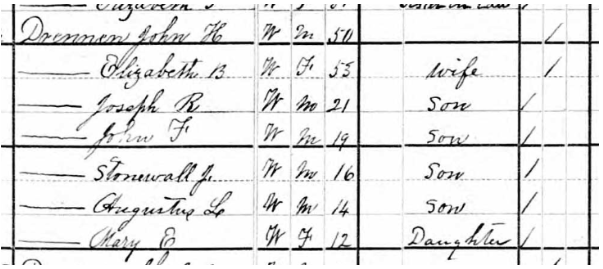 Elizabeth
Drennen John H W M 50 /
—— Elizabeth B W F 55 Wife /
—— Joseph R W M 21 Son /
—— John F W M 19 Son /
—— Stonewall J. W M 16 Son /
—— Augustus L W M 14 Son /
—— Mary E W F 12 Daughter /